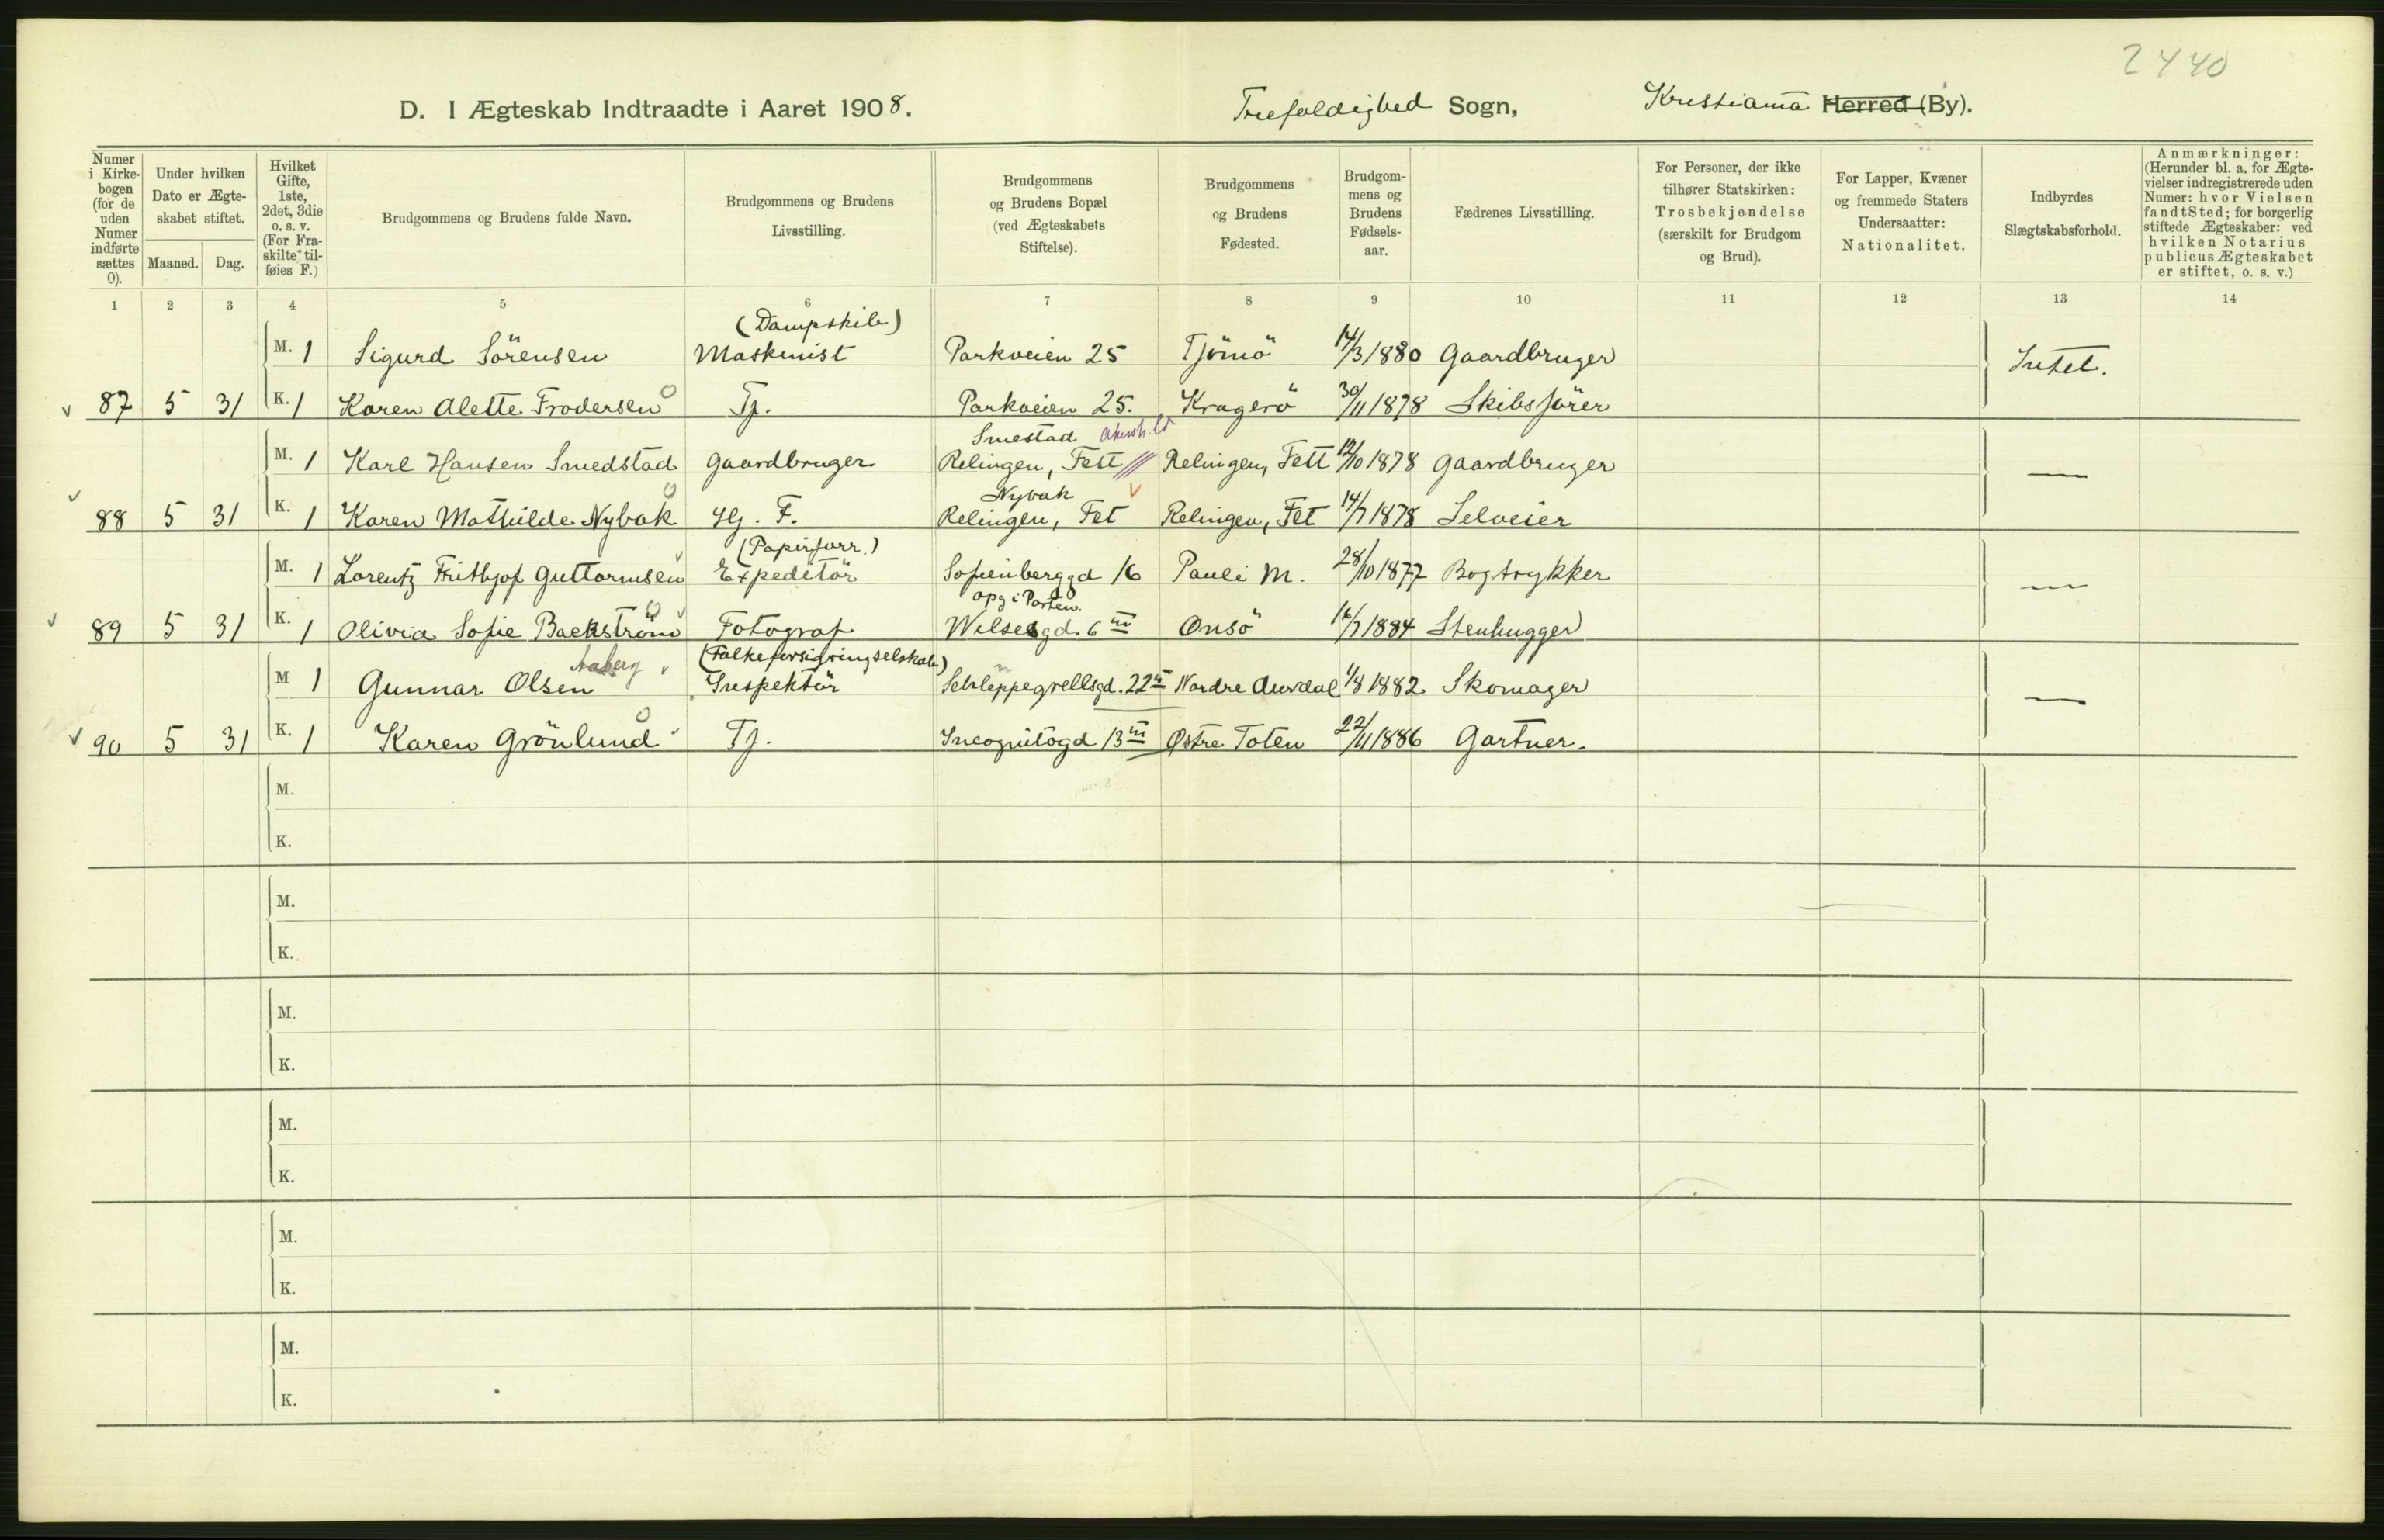 2440
D. I Ægteskab Indtraadte i Aaret 1908. Trefoldighed Sogn, Kristiania Herred (By).
Numer i Kirkebogen (for de uden Numer indførte sættes 0).
Under hvilken Dato er Ægteskabet stiftet.
Maaned. Dag.
Hvilket Gifte, 1ste, 2det, 3die o. s. v. (For Fraskilte tilføies F.)
Brudgommens og Brudens fulde Navn.
Brudgommens og Brudens Livsstilling.
Brudgommens og Brudens Bopæl (ved Ægteskabets Stiftelse).
Brudgommens og Brudens Fødested.
Brudgommens og Brudens Fødselsaar.
Fædrenes Livsstilling.
For Personer, der ikke tilhører Statskirken: Trosbekjendelse (særskilt for Brudgom og Brud).
For Lapper, Kvæner og fremmede Staters Undersaatter: Nationalitet.
Indbyrdes Slægtskabsforhold.
Anmærkninger: (Herunder bl. a. for Ægtevielser indregistrerede uden Numer: hvor Vielsen fandt Sted; for borgerlig stiftede Ægteskaber: ved hvilken Notarius publicus Ægteskabet er stiftet, o. s. v.)
1 2 3 4 5 6 7 8 9 10 11 12 13 14
(Dampskib)
M. 1 Sigurd Sörensen Maskinist Parkveien 25 Tjömö 14/3 1880 Gaardbruger Intet.
87 5 31 K. 1 Karen Alette Frodersen Tj. Parkveien 25. Kragerö 30/11 1878 Skibsförer
Smestad Akersh.
M. 1 Karl Hansen Smedstad Gaardbruger Relingen, Fett Relingen, Fett 12/10 1878 Gaardbruger —
Nybak
88 5 31 K. 1 Karen Mathilde Nybak Hj. F. Relingen, Fet Relingen, Fet 14/7 1878 Selveier
(Papirforr.)
M. 1 Lorentz Frithjof Guttormsen Expeditör Sofienberggd 16 Pauli M. 28/10 1877 Bogtrykker —
opg i Porten.
89 5 31 K. 1 Olivia Sofie Backström Fotograf Wilsesgd. 6 III Onsö 16/7 1884 Stenhugger
Aaberg (Folkeforsigringselskab)
M 1 Gunnar Olsen Inspektör Schleppegrellsgd. 22 Nordre Aurdal 1/8 1882 Skomager —
90 5 31 K. 1 Karen Grönlund Tj. Incognitogd 13 III Østre Toten 22/11 1886 Gartner.
M.
K.
M.
K.
M.
K.
M.
K.
M.
K.
M.
K.